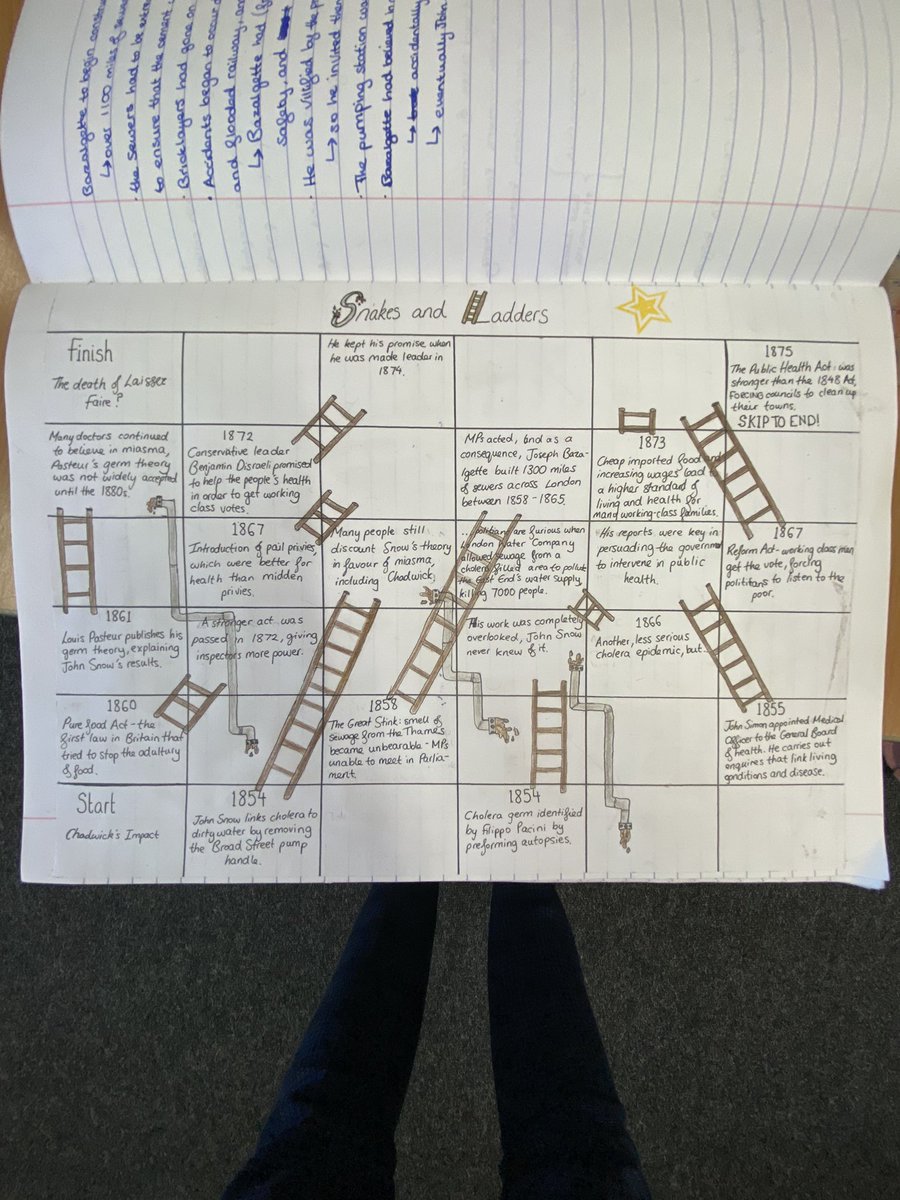 Bazalgette to begin
↳ over 1100 miles of
the sewers had to be
to ensure that the cement
· Bricklayers had gone on
· Accidents began to occur
and flooded railway,
↳ Bazalgette had
safety, and
· He was vilified by the
↳ so he invited
· The pumping station
· Bazalgette had believed
↳ accidentally
↳ eventually
Snakes and Ladders
Finish
The death of Laissez
Faire?
He kept his promise when
he was made leader in
1874.
1875
The Public Health Act was
stronger than the 1848 Act,
FORCING councils to clean up
their towns.
SKIP TO END!
Many doctors continued
to believe in miasma,
Pasteur's germ theory
was not widely accepted
until the 1880s.
1872
Conservative leader
Benjamin Disraeli promised
to help the people's health
in order to get working
class votes.
MPs acted, and as a
consequence, Joseph Baza-
lgette built 1300 miles
of sewers across London
between 1858-1865.
1873
Cheap imported food and
increasing wages lead to
a higher standard of
living and health for
many working-class families.
1867
Introduction of pail privies,
which were better for
health than midden
privies.
Many people still
discount Snow's theory
in favour of miasma,
including Chadwick.
are furious when
London Water Company
allowed sewage from a
cholera filled area to pollute
the East End's water supply,
killing 7000 people.
His reports were key in
persuading the government
to intervene in public
health.
1867
Reform Act - working class men
get the vote, forcing
polititans to listen to the
poor.
1861
Louis Pasteur publishes his
germ theory, explaining
John Snow's results.
A stronger act was
passed in 1872, giving
inspectors more power.
This work was completely
overlooked, John Snow
never knew of it.
1866
Another, less serious
cholera epidemic, but..
1860
Pure food Act - the
first law in Britain that
tried to stop the adultury
of food.
1858
The Great Stink: smell of
sewage from the Thames
became unbearable - MPs
unable to meet in Parlia-
ment.
1855
John Simon appointed Medical
Officer to the General Board
of health. He carries out
enquires that link living
conditions and disease.
Start
Chadwick's Impact
1854
John Snow links cholera to
dirty water by removing
the Broad Street pump
handle.
1854
Cholera germ identified
by Filippo Pacini by
preforming autopsies.